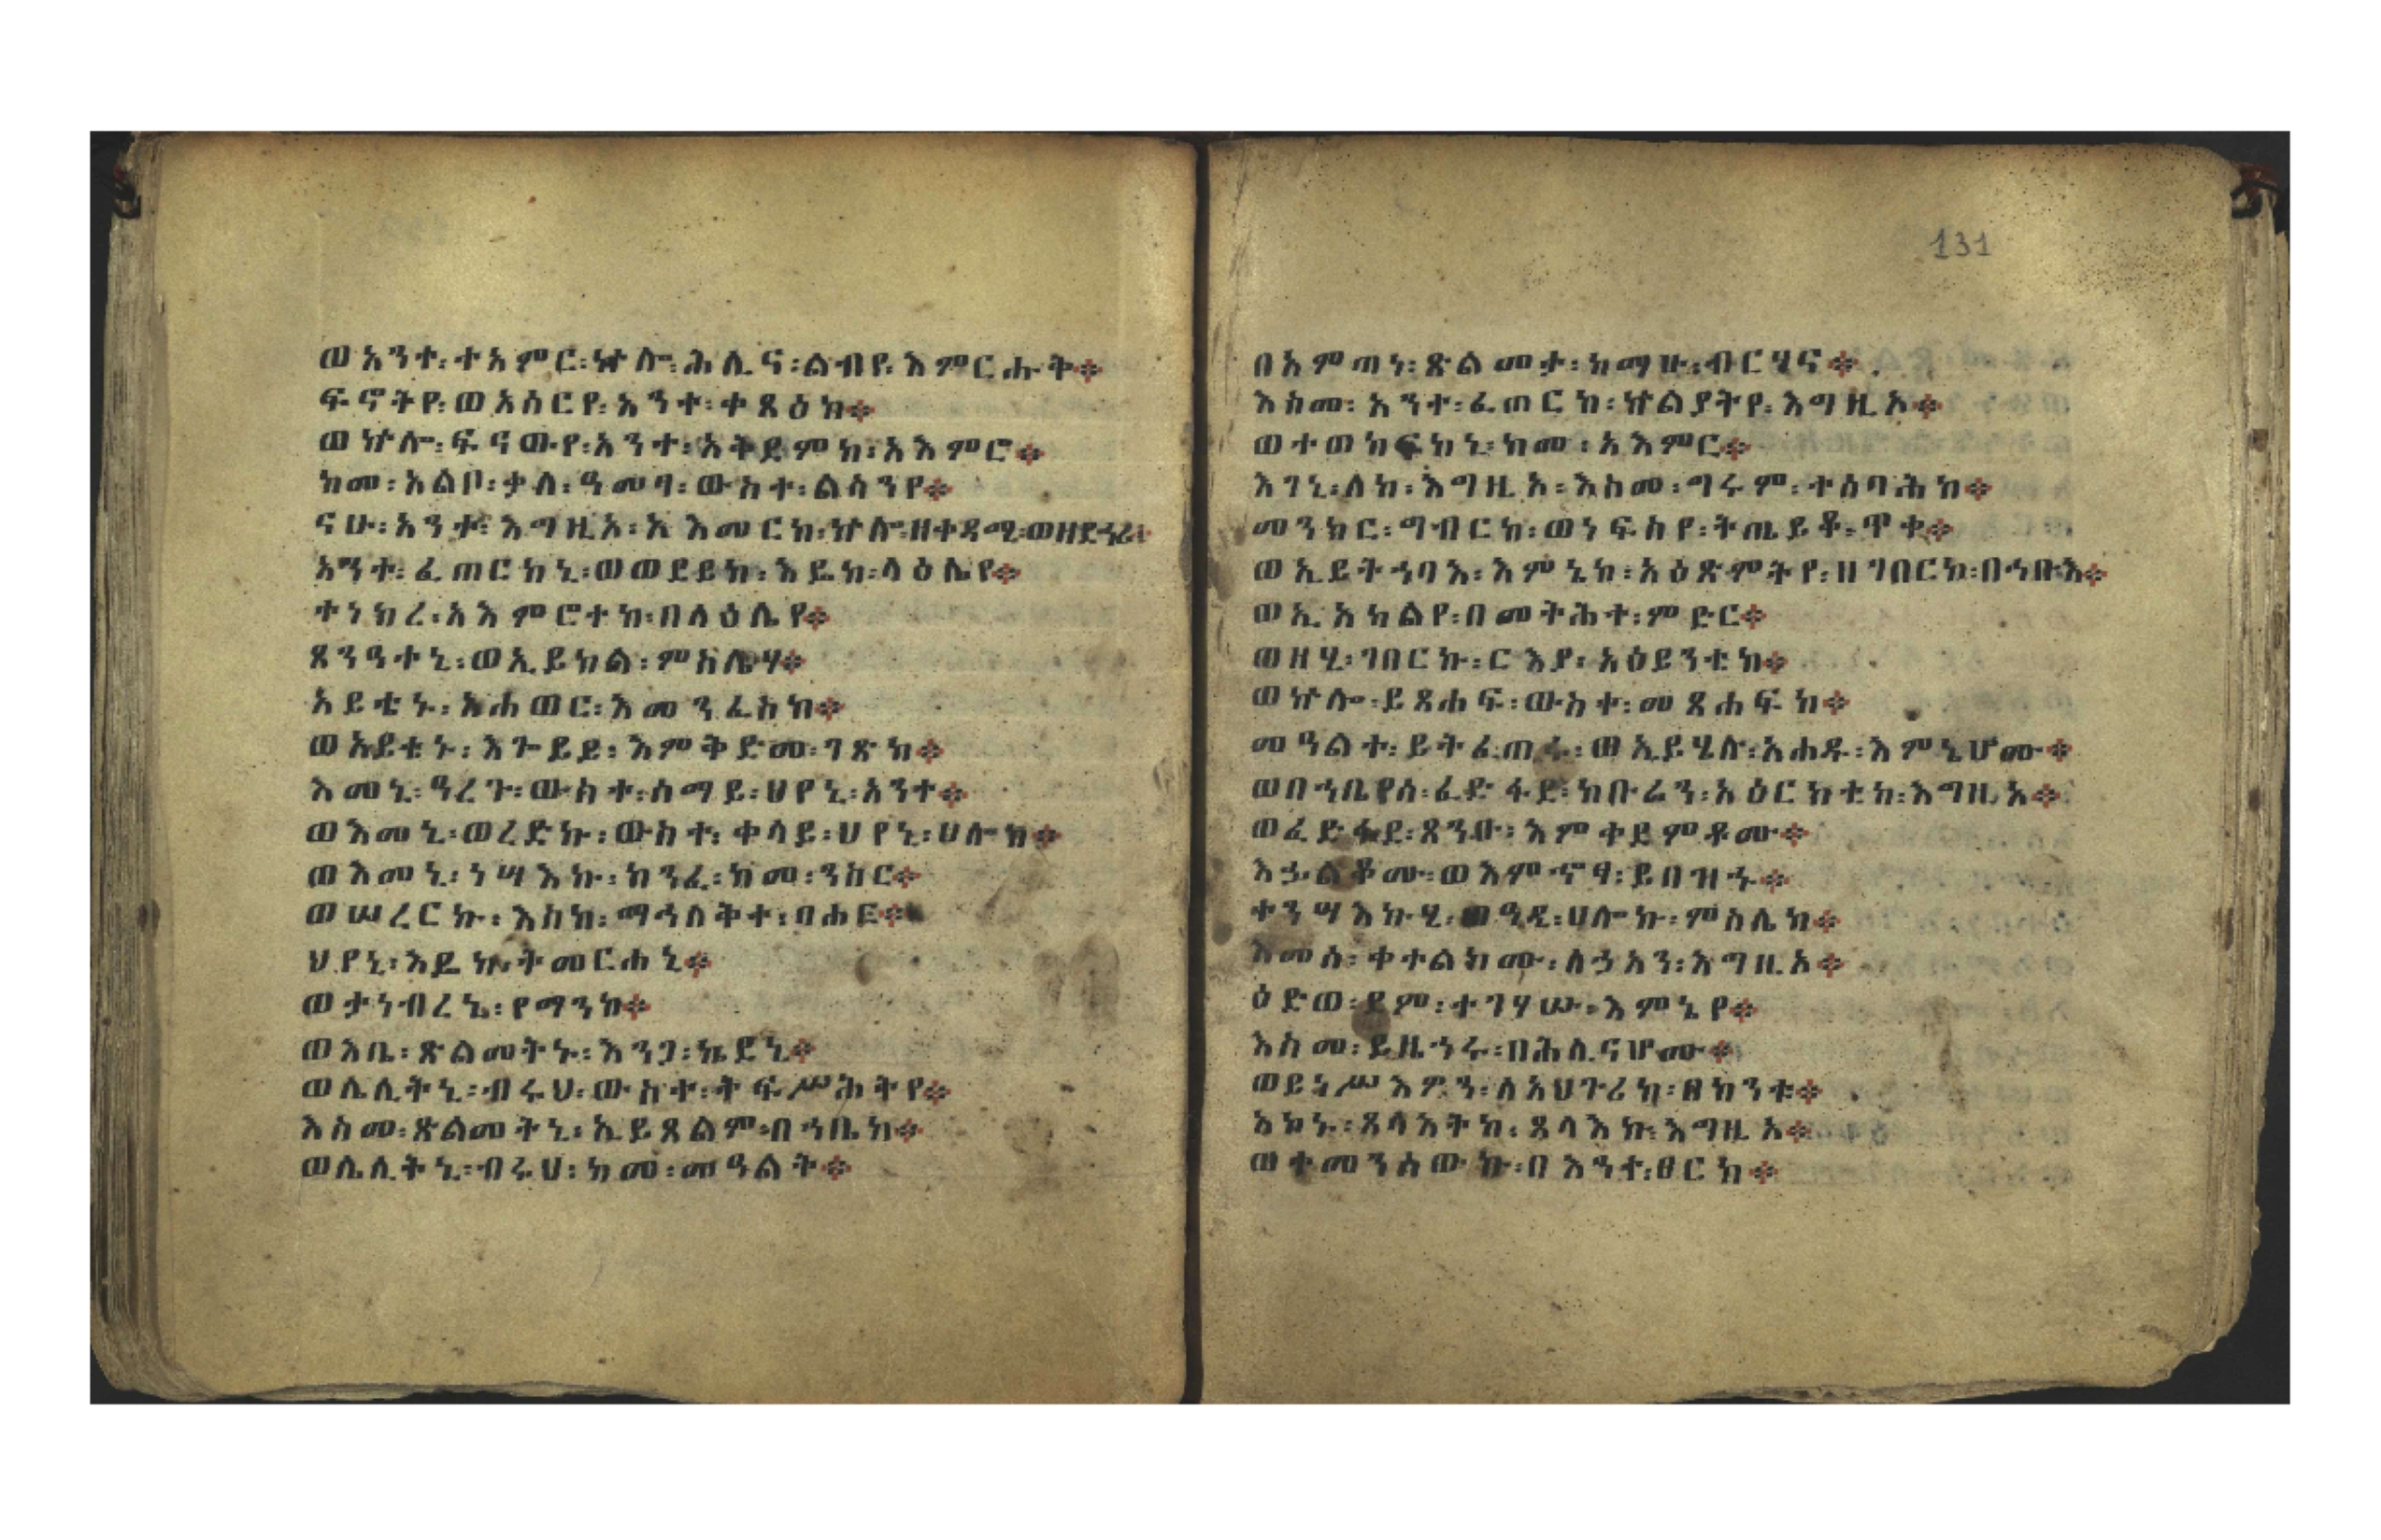 ወአንተ፡ተአምር፡ኵሎ፡ሕሊና፡ልብየ፡እምርሑቅ፨
ፍኖትየ፡ወአሰርየ፡አንተ፡ቀጻዕከ፨
ወኵሎ፡ፍናውየ፡አንተ፡አቅደምከ፡አእምሮ፨
ከመ፡አልቦ፡ቃለ፡ዓመፃ፡ውስተ፡ልሳንየ፨
ናሁ፡አንተ፡እግዚአ፡አእመርከ፡ኵሎ፡ዘቀዳሚ፡ወዘደኃሪ፡
አንተ፡ፈጠርከኒ፡ወወደይከ፡እዴከ፡ላዕሌየ፨
ተነክረ፡አእምሮትከ፡በላዕሌየ፨
ጸንዓተኒ፡ወኢይክል፡ምስሌሃ፨
አይቴኑ፡አሐውር፡እመንፈስከ፨
ወአይቴኑ፡እጐይይ፡እምቅድመ፡ገጽከ፨
እመኒ፡ዓረጉ፡ውስተ፡ሰማይ፡ህየኒ፡አንተ፨
ወእመኒ፡ወረድኩ፡ውስተ፡ቀላይ፡ህየኒ፡ሀሎከ፨
ወእመኒ፡ነሣእኩ፡ክንፈ፡ከመ፡ንስር፨
ወሠረርኩ፡እስከ፡ማኅለቅተ፡ባሕር፨
ህየኒ፡እዴከ፡ትመርሐኒ፨
ወታነብረኒ፡የማንከ፨
ወእቤ፡ጽልመትኑ፡እንጋ፡ኬደኒ፨
ወሌሊትኒ፡ብሩህ፡ውስተ፡ትፍሥሕትየ፨
እስመ፡ጽልመትኒ፡ኢይጸልም፡በኀቤከ፨
ወሌሊትኒ፡ብሩህ፡ከመ፡መዓልት፨
131
በአምጣነ፡ጽልመታ፡ከማሁ፡ብርሃና፨
እስመ፡አንተ፡ፈጠርከ፡ኵልያትየ፡እግዚኦ፨
ወተወከፍከኒ፡ከመ፡አእምር፨
እገኒ፡ለከ፡እግዚአ፡እስመ፡ግሩም፡ተሰባሕከ፨
መንክር፡ግብርከ፡ወነፍስየ፡ትጤይቆ፡ጥቀ፨
ወኢይትኀባእ፡እምኔከ፡አዕጽምትየ፡ዘገበርከ፡በኅቡእ፨
ወኢአካልየ፡በመትሕተ፡ምድር፨
ወዘሂ፡ገበርኩ፡ርእያ፡አዕይንቲከ፨
ወኵሎ፡ይጸሐፍ፡ውስተ፡መጸሐፍከ፨
መዓልተ፡ይትፈጠሩ፡ወኢይሄሉ፡አሐዱ፡እምኔሆሙ፨
ወበኀቤየሰ፡ፈድፋደ፡ክቡራን፡አዕርክቲከ፡እግዚአ፨
ወፈድፋደ፡ጸንዑ፡እምቀደምቶሙ፨
እኄልቆሙ፡ወእምኖፃ፡ይበዝኁ፨
ተንሣእኩሂ፡ወዓዲ፡ሀሎኩ፡ምስሌከ፨
እመሰ፡ቀተልከሙ፡ለኃአን፡እግዚአ፨
ዕድወ፡ደም፡ተገሃሡ፡እምኔየ፨
እስመ፡ይዜኀሩ፡በሕሊናሆሙ፨
ወይነሥእዎን፡ለአህጉሪከ፡በከንቱ፨
አኮኑ፡ጸላእትከ፡ጸላእኩ፡እግዚአ፨
ወተመንሰውኩ፡በእንተ፡ፀርከ፨